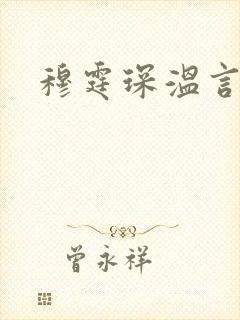 穆霆琛温言
曾永祥